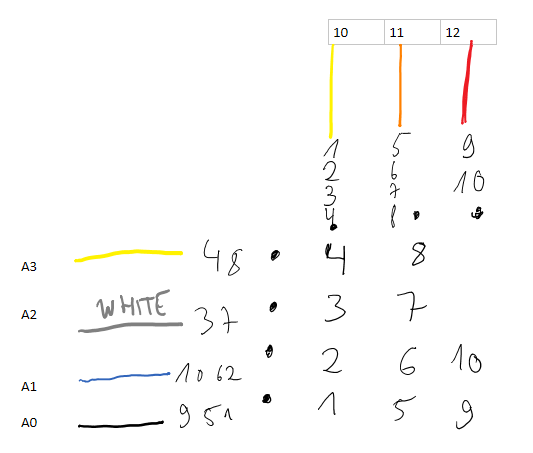 10 11 12
1 5 9
2 6 10
3 7
4 8
A3 48 4 8
A2 WHITE 37 3 7
A1 10 62 2 6 10
A0 9 51 1 5 9